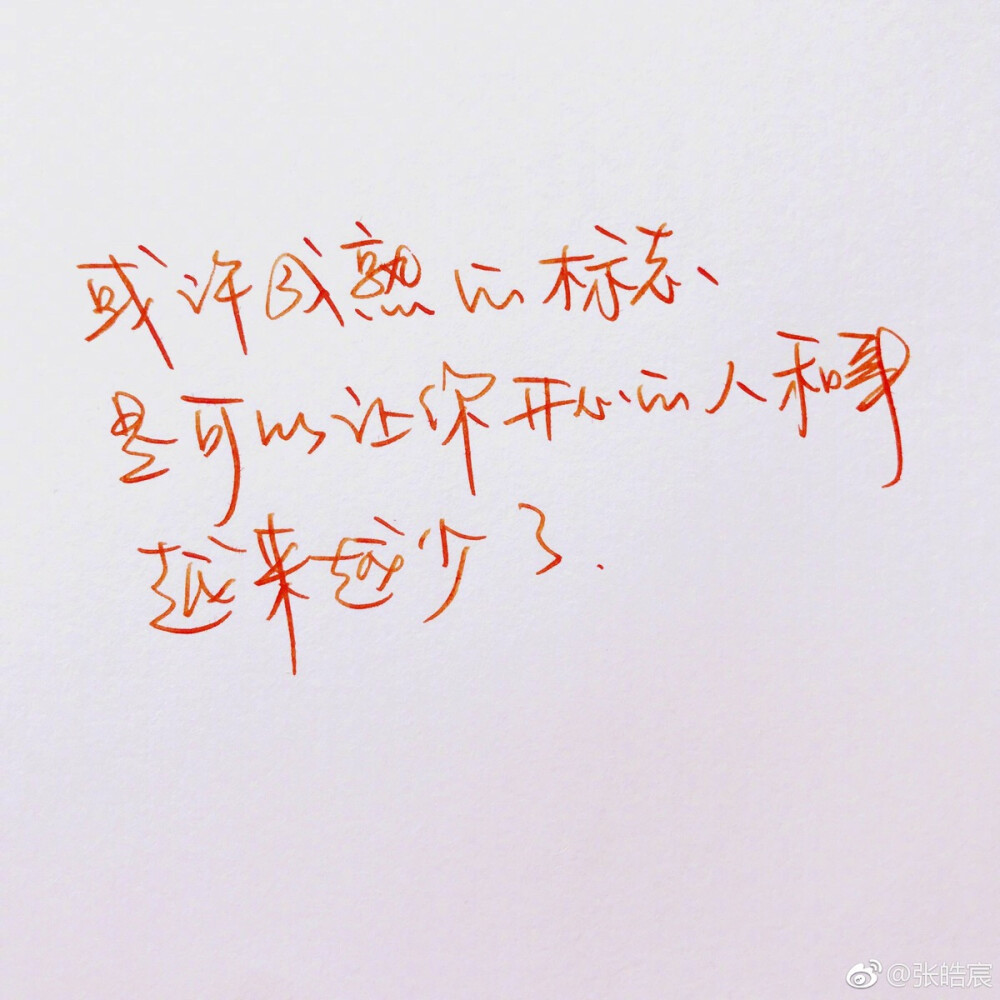 或许成熟的标志、
是可以让你开心的人和事
越来越少了.
@张皓宸